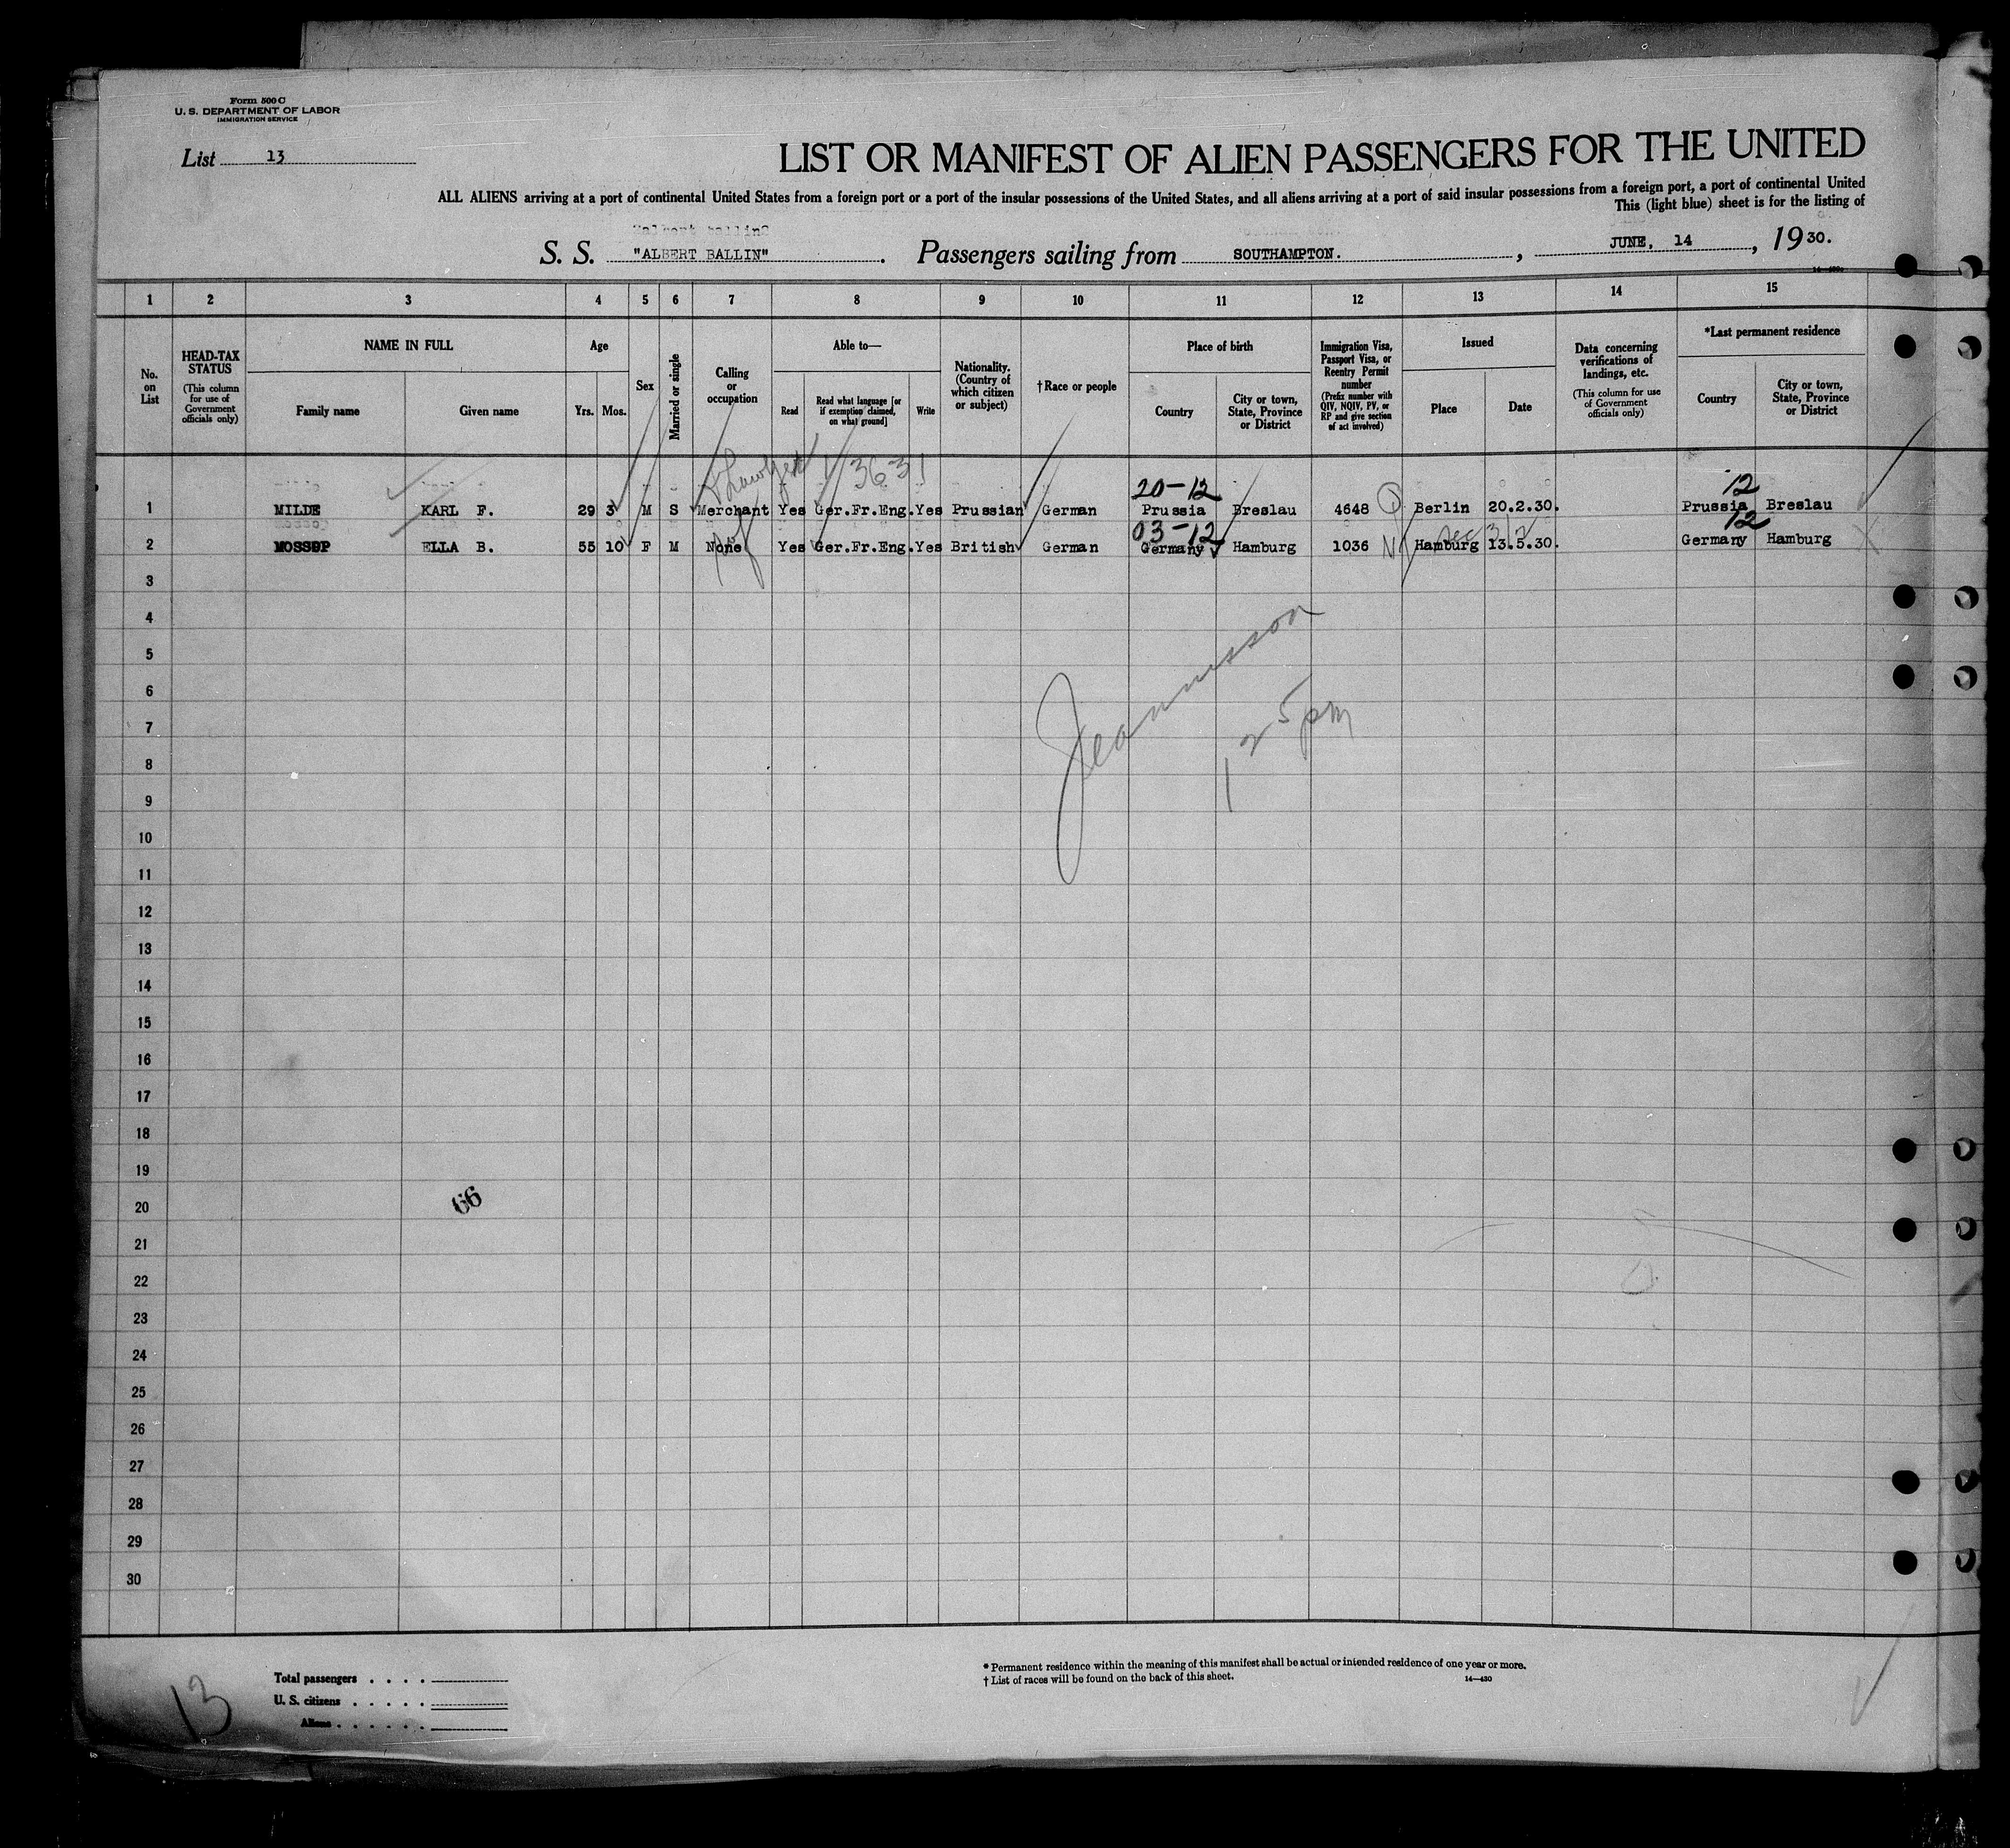 Form 500 C
U. S. DEPARTMENT OF LABOR
IMMIGRATION SERVICE
List 13
LIST OR MANIFEST OF ALIEN PASSENGERS FOR THE UNITED
ALL ALIENS arriving at a port of continental United States from a foreign port or a port of the insular possessions of the United States, and all aliens arriving at a port of said insular possessions from a foreign port, a port of continental United
This (light blue) sheet is for the listing of
S. S. "ALBERT BALLIN". Passengers sailing from SOUTHAMPTON. , JUNE, 14 , 1930.
1 2 3 4 5 6 7 8 9 10 11 12 13 14 15
No. on List
HEAD-TAX STATUS
(This column for use of Government officials only)
NAME IN FULL
Family name
Given name
Age
Yrs. Mos.
Sex
Married or single
Calling or occupation
Able to—
Read
Read what language [or if exemption claimed, on what ground]
Write
Nationality. (Country of which citizen or subject)
†Race or people
Place of birth
Country
City or town, State, Province or District
Immigration Visa, Passport Visa, or Reentry Permit number
(Prefix number with QIV, NQIV, PV, or RP and give section of act involved)
Issued
Place
Date
Data concerning verifications of landings, etc.
(This column for use of Government officials only)
*Last permanent residence
Country
City or town, State, Province or District
3631
20-12
12
1 MILDE KARL F. 29 3 M S Merchant Yes Ger.Fr.Eng. Yes Prussian German Prussia Breslau 4648 Berlin 20.2.30. Prussia Breslau
03-12
12
2 ELLA B. 55 10 F M None Yes Ger.Fr.Eng. Yes British German Germany Hamburg 1036 Hamburg 13.5.30. Germany Hamburg
3
4
5
6
7
8
9
10
11
12
13
14
15
16
17
18
19
20
21
22
23
24
25
26
27
28
29
30
1 25 pm
66
13
Total passengers . . . .
U. S. citizens . . . . .
Aliens . . . . . .
* Permanent residence within the meaning of this manifest shall be actual or intended residence of one year or more.
† List of races will be found on the back of this sheet.
14—430